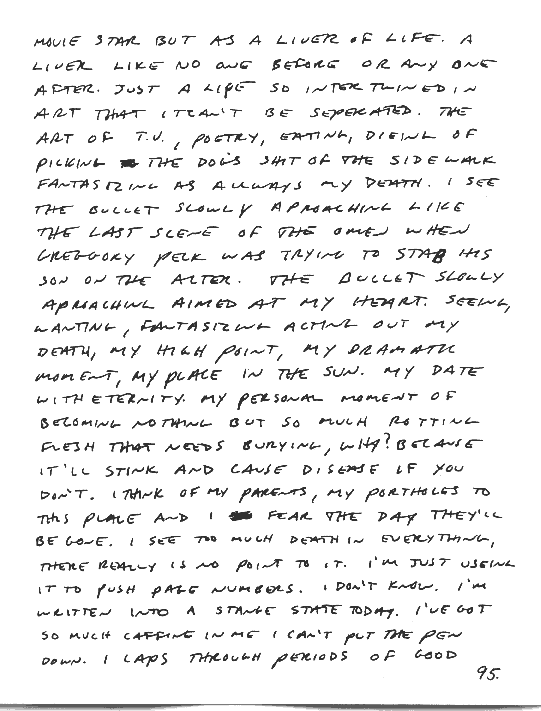 MOVIE STAR BUT AS A LIVER OF LIFE. A
LIVER LIKE NO ONE BEFORE OR ANY ONE
AFTER. JUST A LIFE SO INTERTWINED IN
ART THAT IT CAN'T BE SEPERATED. THE
ART OF T.V., POETRY, EATING, DIEING OF
PICKING THE DOG'S SHIT OF THE SIDEWALK
FANTASIZING AS ALLWAYS MY DEATH. I SEE
THE BULLET SLOWLY APROACHING LIKE
THE LAST SCENE OF THE OMEN WHEN
GREGGORY PECK WAS TRYING TO STAB HIS
SON ON THE ALTER. THE BULLET SLOWLY
APROACHING AIMED AT MY HEART. SEEING,
WANTING, FANTASIZING ACTING OUT MY
DEATH, MY HIGH POINT, MY DRAMATIC
MOMENT, MY PLACE IN THE SUN. MY DATE
WITH ETERNITY. MY PERSONAL MOMENT OF
BECOMING NOTHING BUT SO MUCH ROTTING
FLESH THAT NEEDS BURYING, WHY? BECAUSE
IT'LL STINK AND CAUSE DISEASE IF YOU
DON'T. I THINK OF MY PARENTS, MY PORTHOLES TO
THIS PLACE AND I FEAR THE DAY THEY'LL
BE GONE. I SEE TOO MUCH DEATH IN EVERYTHING,
THERE REALLY IS NO POINT TO IT. I'M JUST USEING
IT TO PUSH PAGE NUMBERS. I DON'T KNOW. I'M
WRITTEN INTO A STANGE STATE TODAY. I'VE GOT
SO MUCH CAFFINE IN ME I CAN'T PUT THE PEN
DOWN. I LAPS THROUGH PERIODS OF GOOD
95.